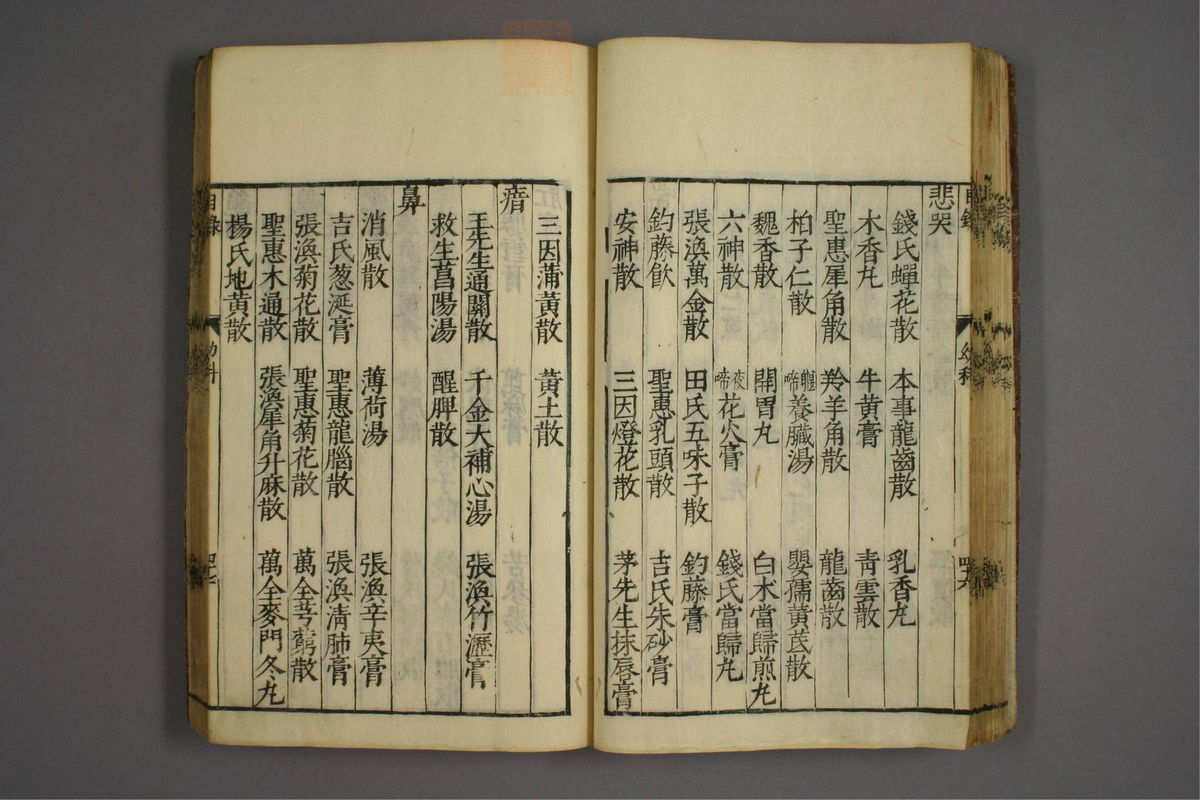 目錄 幼科 四六
悲哭
錢氏蟬花散 本事龍齒散 乳香丸
木香丸 牛黃膏 靑雲散
聖惠犀角散 羚羊角散 龍齒散
柏子仁散 軀啼養臟湯 嬰孺黃芪散
魏香散 開胃丸 白朮當歸煎丸
六神散 夜啼花火膏 錢氏當歸丸
張渙萬金散 田氏五味子散 釣藤膏
釣藤飲 聖惠乳頭散 吉氏朱砂膏
安神散 三因燈花散 茅先生抹唇膏
三因蒲黃散 黃土散
瘖
王先生通關散 千金大補心湯 張渙竹瀝膏
救生菖陽湯 醒脾散
鼻
消風散 薄荷湯 張渙辛夷膏
吉氏葱涎膏 聖惠龍腦散 張渙淸肺膏
張渙菊花散 聖惠菊花散 萬全芎藭散
聖惠木通散 張渙犀角升麻散 萬全麥門冬丸
楊氏地黃散
目錄 幼科 四七